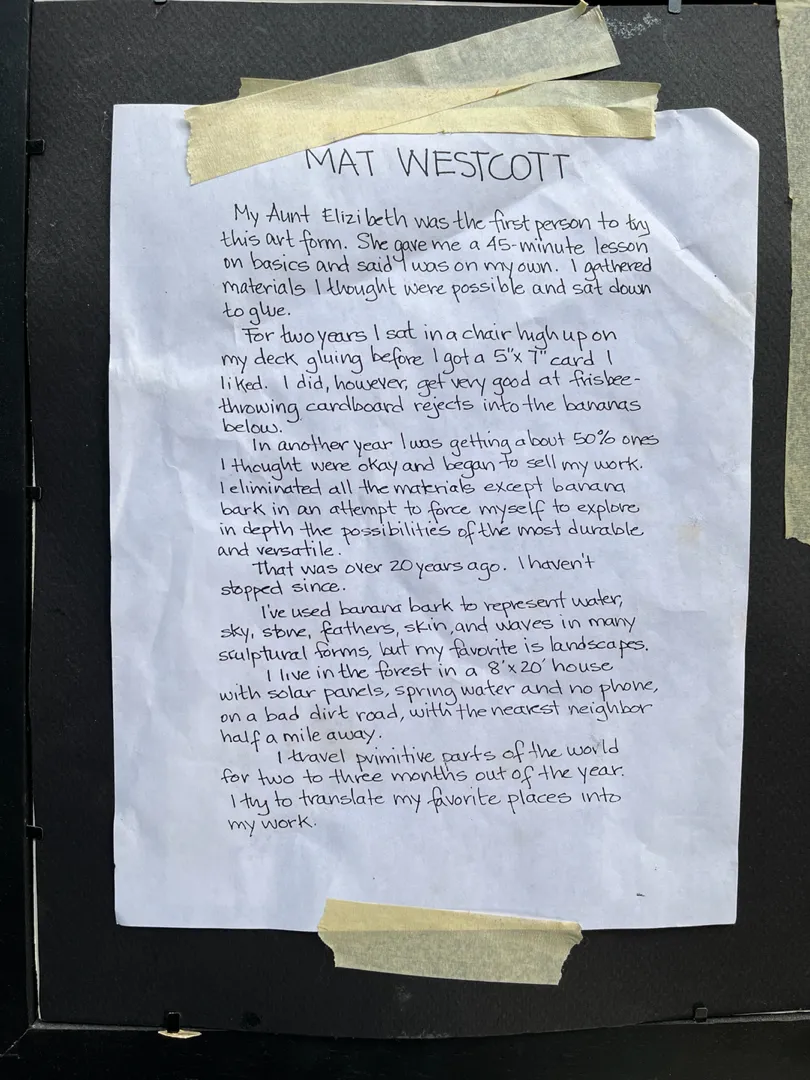 MAT WESTCOTT
My Aunt Elizibeth was the first person to try
this art form. She gave me a 45-minute lesson
on basics and said I was on my own. I gathered
materials I thought were possible and sat down
to glue.
For two years I sat in a chair high up on
my deck gluing before I got a 5"x 7" card I
liked. I did, however, get very good at frisbee-
throwing cardboard rejects into the bananas
below.
In another year I was getting about 50% ones
I thought were okay and began to sell my work.
I eliminated all the materials except banana
bark in an attempt to force myself to explore
in depth the possibilities of the most durable
and versatile.
That was over 20 years ago. I haven't
stopped since.
I've used banana bark to represent water,
sky, stone, feathers, skin, and waves in many
sculptural forms, but my favorite is landscapes.
I live in the forest in a 8'x 20' house
with solar panels, spring water and no phone,
on a bad dirt road, with the nearest neighbor
half a mile away.
I travel primitive parts of the world
for two to three months out of the year.
I try to translate my favorite places into
my work.